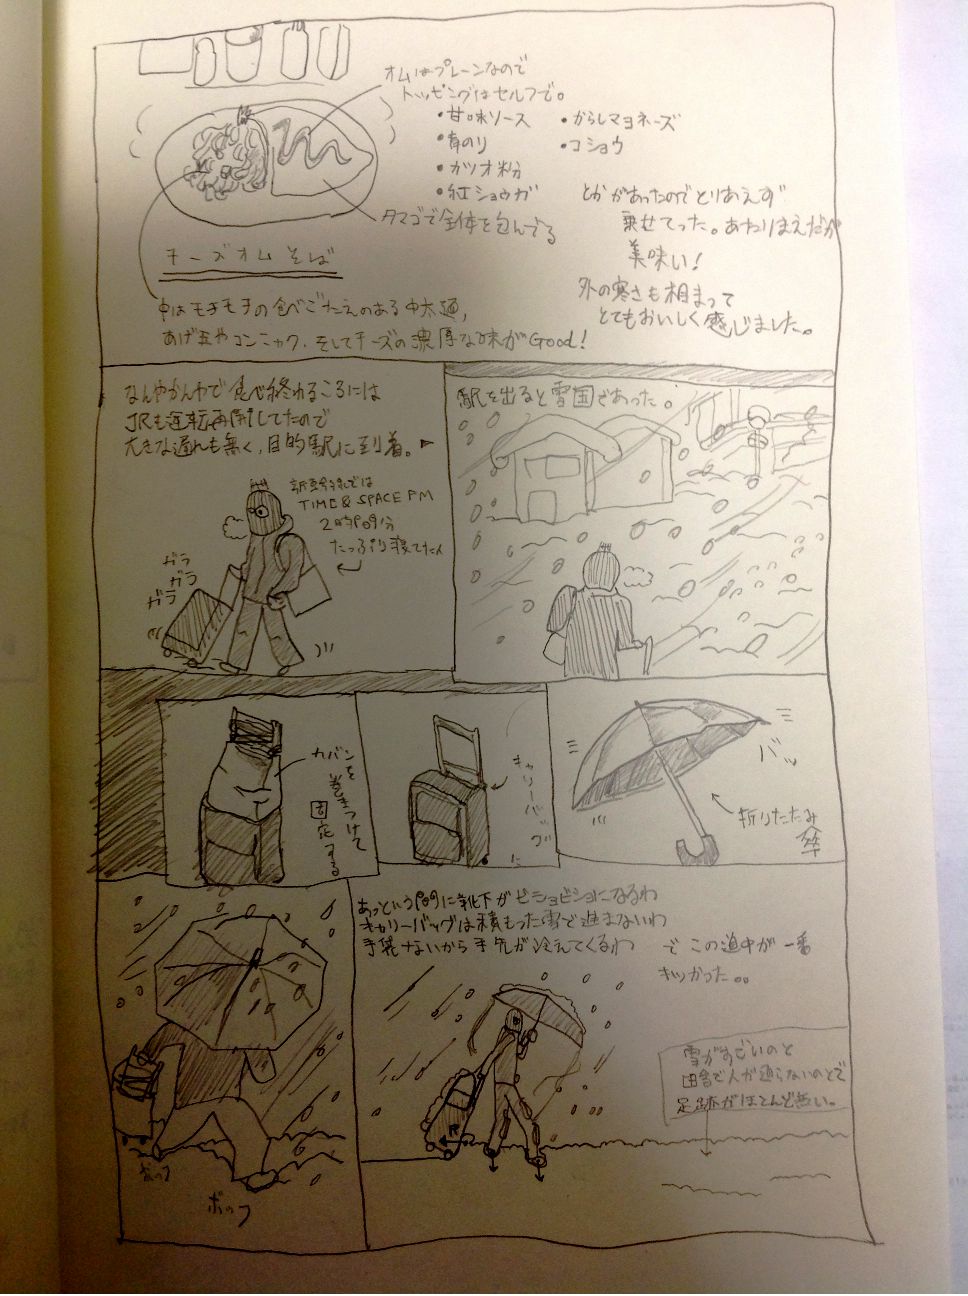 オムはプレーンなので
トッピングはセルフで。
・甘口ソース
・青のり
・カツオ粉
・紅ショウガ
・からしマヨネーズ
・コショウ
タマゴで全体を包んでる
とかがあったのでとりあえず
乗せてった。あたりまえだが
美味い!
外の寒さも相まって
とてもおいしく感じました。
チーズオムそば
中はモチモチの食べごたえのある中太麺,
あげ玉やコンニャク、そしてチーズの濃厚な味がGood!
なんやかんやで食べ終わるころには
JRも運転再開してたので
大きな遅れも無く,目的駅に到着。
新幹線では
TIME & SPACE PM
2時間9分
たっぷり寝てたん
ガラ
ガラ
ガラ
駅を出ると雪国であった。
カバンを
巻きつけて
固定する
キャリーバッグに
バッ
折りたたみ
傘
あっという間に靴下がビショビショになるわ
キャリーバッグは積もった雪で進まないわ
手袋ないから手先が冷えてくるわ
で この道中が一番
キツかった。。
雪がすごいのと
田舎で人が通らないのとで
足跡がほとんど無い。
ボッフ
ボッフ